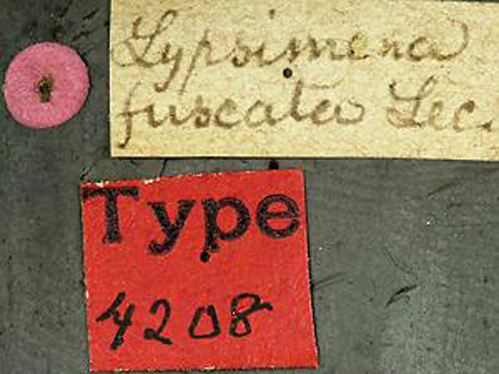 Lypsimena
fuscata Lec.
Type
4208